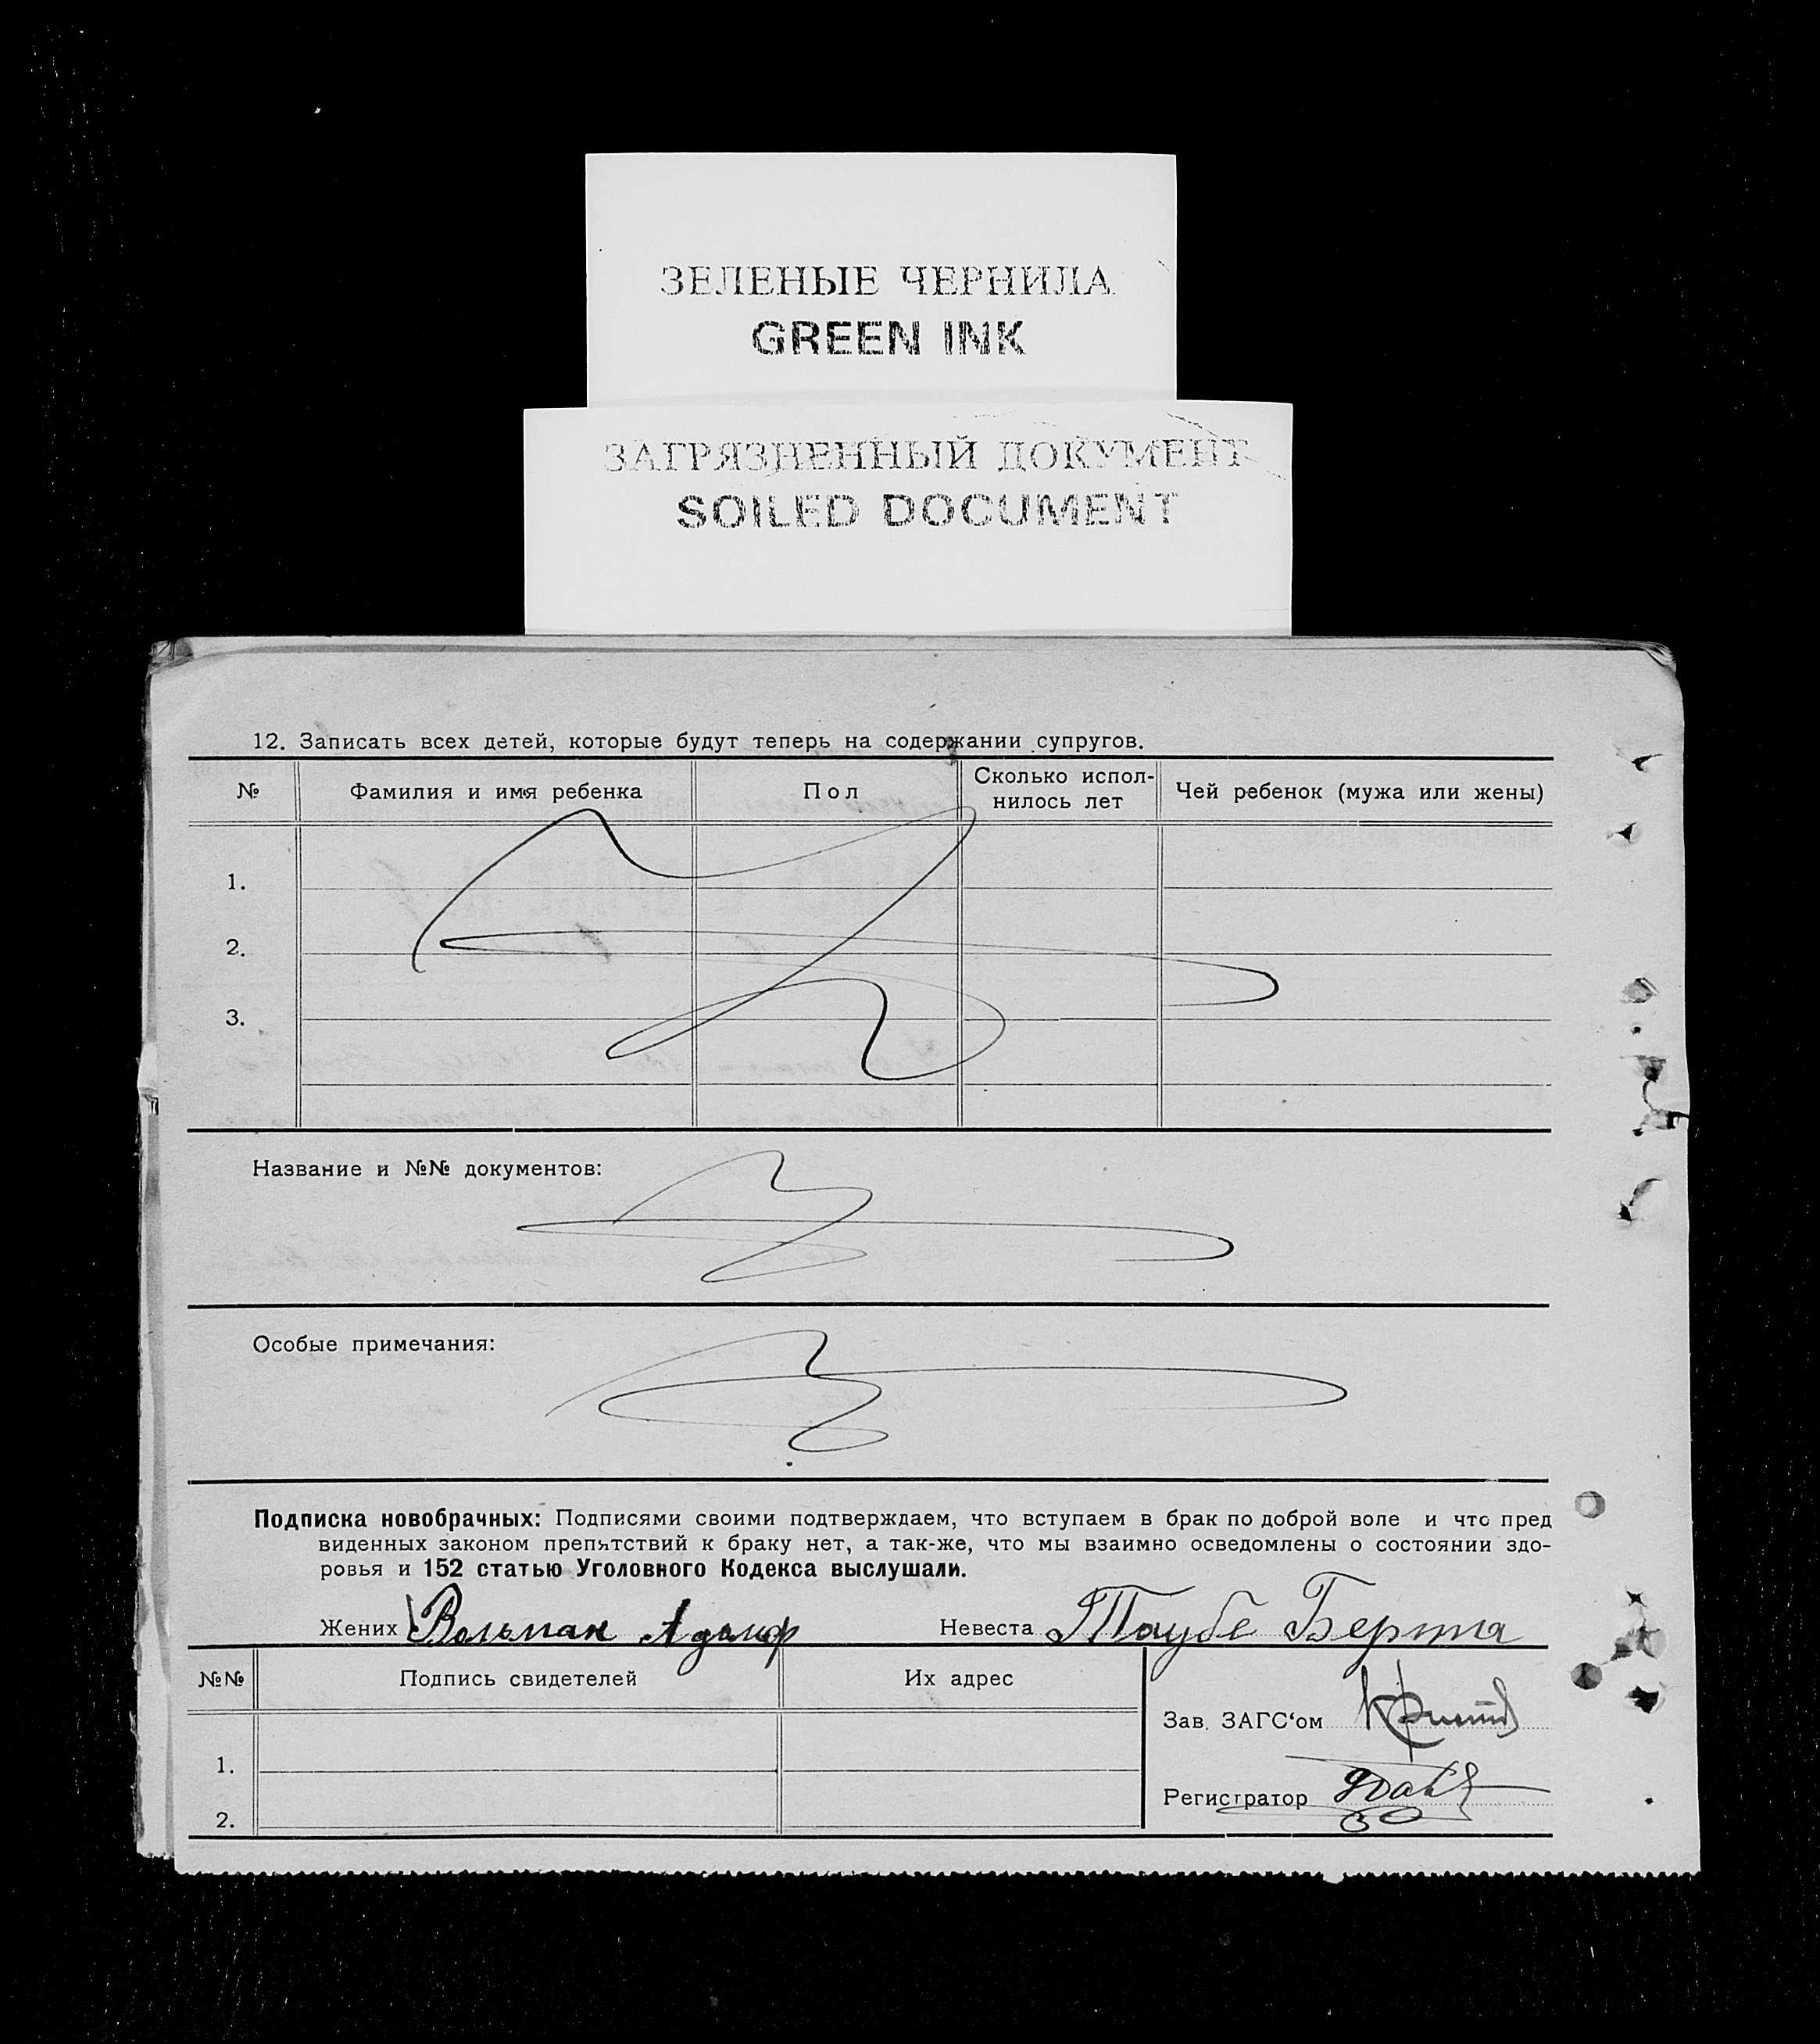 ЗЕЛЕНЫЕ ЧЕРНИЛА
GREEN INK
ЗАГРЯЗНЕННЫЙ ДОКУМЕНТ
SOILED DOCUMENT
12. Записать всех детей, которые будут теперь на содержании супругов.
№ Фамилия и имя ребенка Пол Сколько испол-нилось лет Чей ребенок (мужа или жены)
1.
2.
3.
Название и №№ документов:
Особые примечания:
Подписка новобрачных: Подписями своими подтверждаем, что вступаем в брак по доброй воле и что пред
виденных законом препятствий к браку нет, а так-же, что мы взаимно осведомлены о состоянии здо-
ровья и 152 статью Уголовного Кодекса выслушали.
Жених Вольман Адольф Невеста Таубе Берта
№№ Подпись свидетелей Их адрес
Зав. ЗАГС‘ом
1.
Регистратор
2.